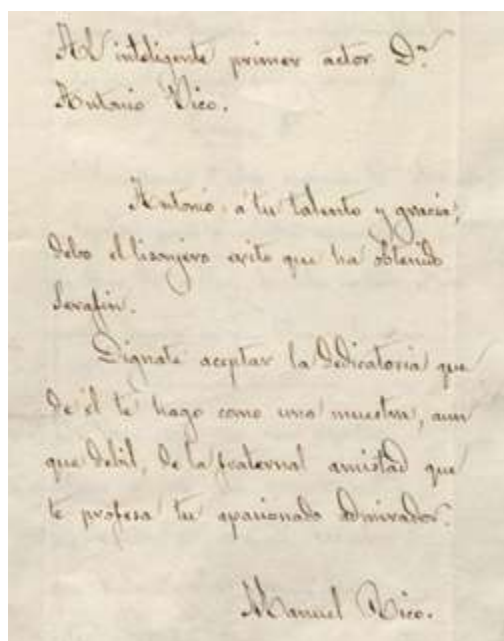 Al inteligente primer actor Dn
Antonio Vico.
Antonio: a tu talento y gracia,
debo el lisonjero exito que ha obtenido
Serafin.
Dignate aceptar la dedicatoria que
de él te hago como una muestra, aun
que debil, de la fraternal amistad que
te profesa tu apasionado admirador.
Manuel Rico.